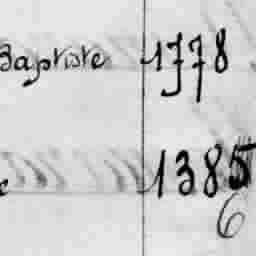 Baptiste 1778
1385
6